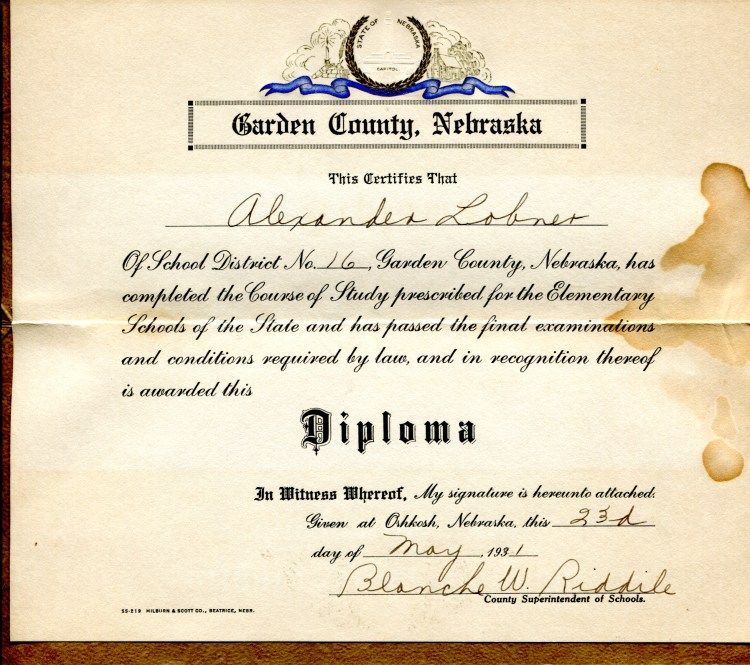 STATE OF NEBRASKA
CAPITOL
Garden County, Nebraska
This Certifies That
Alexander Lobner
Of School District No. 16, Garden County, Nebraska, has
completed the Course of Study prescribed for the Elementary
Schools of the State and has passed the final examinations
and conditions required by law, and in recognition thereof
is awarded this
Diploma
In Witness Whereof, My signature is hereunto attached:
Given at Oshkosh, Nebraska, this 23d
day of May, 1931
Blanche W. Riddile
County Superintendent of Schools.
SS-219 MILBURN & SCOTT CO., BEATRICE, NEBR.